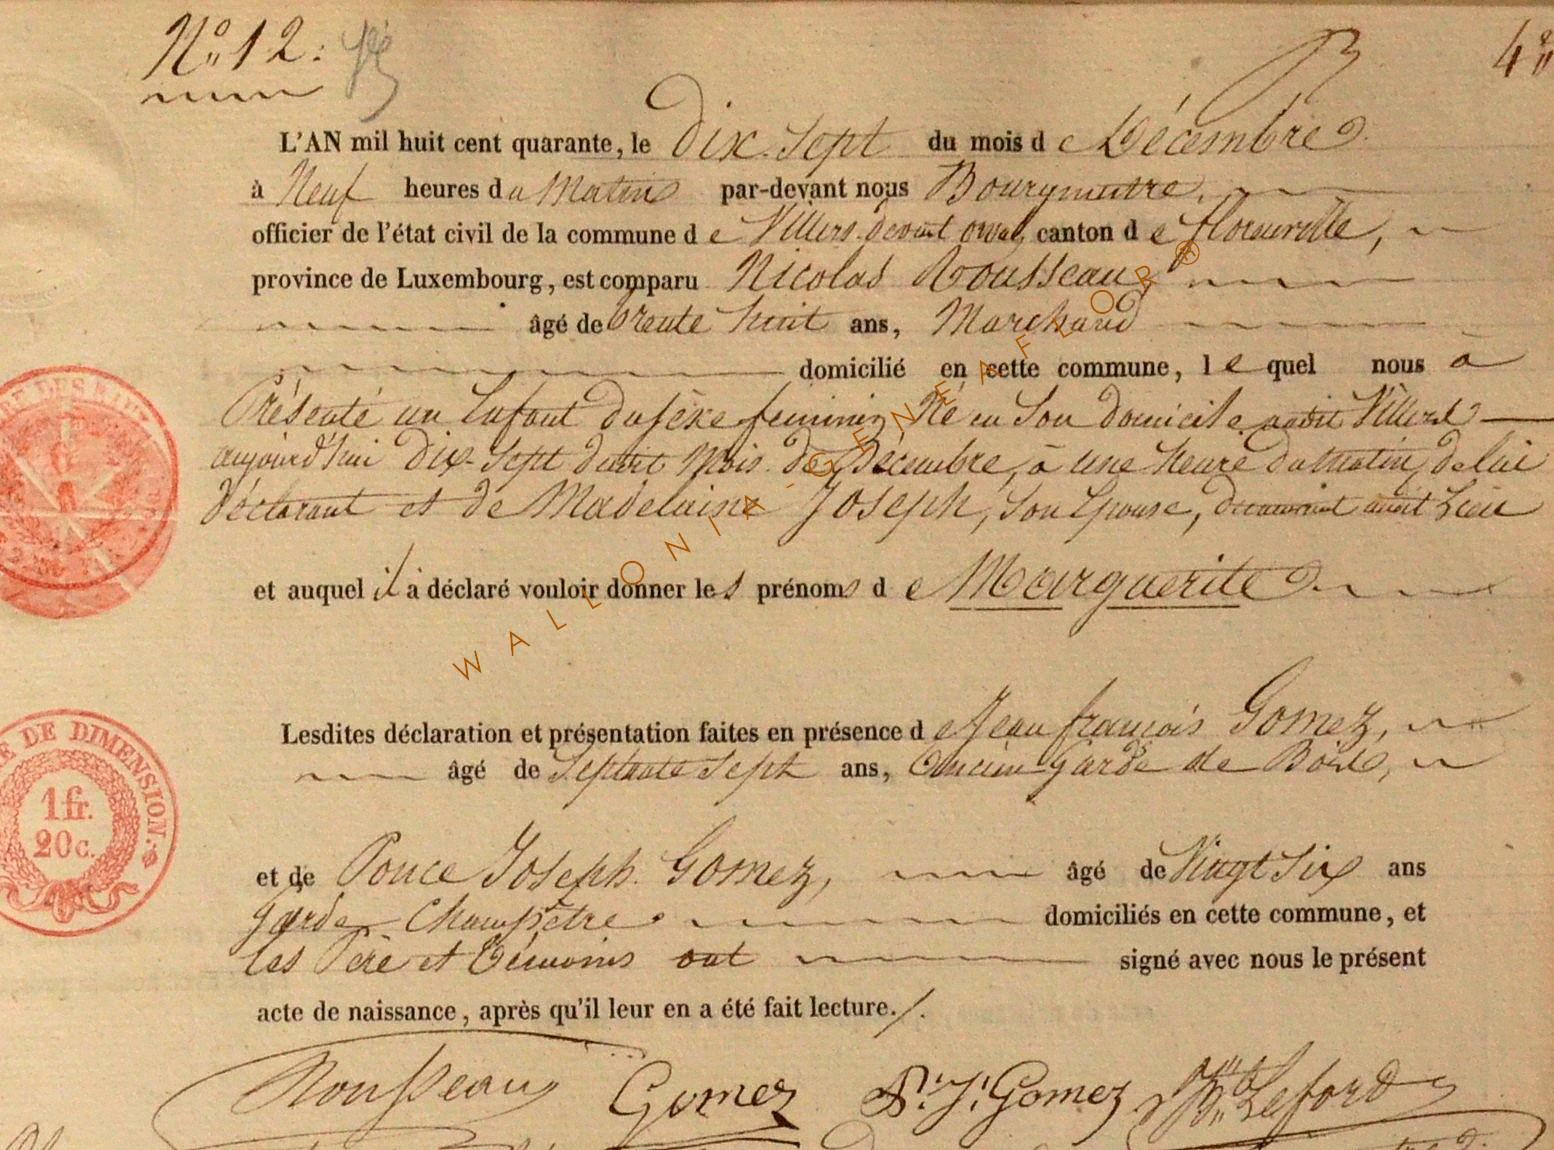 N° 12.
L'AN mil huit cent quarante, le Dix-Sept du mois de Décembre
à Neuf heures du Matin par-devant nous Bourgmestre,
officier de l'état civil de la commune de Villers devant orval, canton de florenville,
province de Luxembourg, est comparu Nicolas Rousseau
âgé de trente huit ans, Marchand
domicilié en cette commune, lequel nous à
Présenté un Enfant du sexe feminin, Né en Son domicile audit Villers
aujourd'hui dix-Sept dudit Mois de Décembre, à une heure du matin, de lui
déclarant et de Madelaine Joseph, Son Epouse, audit Lieu
et auquel il à déclaré vouloir donner les prénoms de Marguerite
Lesdites déclaration et présentation faites en présence de Jean françois Gomez,
âgé de Septante Sept ans, Ancien Garde de Bois,
et de Ponce Joseph Gomez, âgé de Vingt Six ans
Garde Champêtre domiciliés en cette commune, et
les Père et Témoins ont signé avec nous le présent
acte de naissance, après qu'il leur en a été fait lecture./.
Rousseau Gomez P. J. Gomez Leford
E DE DIMENSION.
1 fr.
20 c.
WALLONIA GENEAFLOR ®